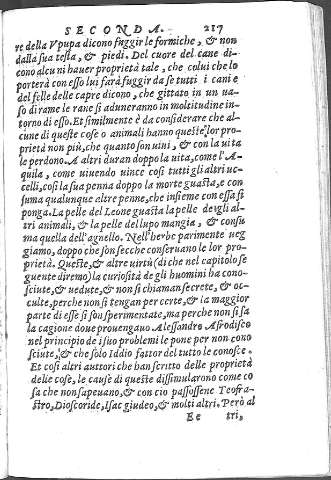 SECONDA. 217
re della Vpupa dicono fuggir le formiche, & non
dalla sua testa, & piedi. Del cuore del cane di-
cono alcuni hauer proprietà tale, che colui che lo
porterà con esso lui farà fuggir da se tutti i cani e
del felle delle capre dicono, che gittato in un ua-
so dirame le rane si aduneranno in moltitudine in-
torno di esso. Et similmente è da considerare che al-
cune di queste cose o animali hanno queste lor pro-
prietà non più, che quanto son uiui, & con la uita
le perdono. A altri duran doppo la uita, come l'A-
quila, come uiuendo uince così tutti gli altri uc-
celli, così la sua penna doppo la morte guasta, e con
suma qualunque altre penne, che insieme con essa si
ponga. La pelle del Leone guasta la pelle degli al-
tri animali, & la pelle del lupo mangia, & consu
ma quella dell'agnello. Nell'herbe parimente ueg
giamo, doppo che son secche conseruano le lor pro-
prietà. Queste, & altre uirtù (di che nel capitolo se
guente diremo) la curiosità de gli huomini ha cono-
sciute, & uedute, & non si chiaman secrete, & oc-
culte, perche non si tengan per certe, & la maggior
parte di esse si son sperimentate, ma perche non si sa
la cagione doue prouengano Alessandro Afrodiseo
nel principio de i suoi problemi le pone per non cono
sciute, & che solo Iddio fattor del tutto le conosce.
Et così altri auttori che han scritto delle proprietà
delle cose, le cause di queste dissimularono come co
sa che non sapeuano, & con cio passossene Teofra-
stro, Dioscoride, Isac giudeo, & molti altri. Però al
Ee tri,